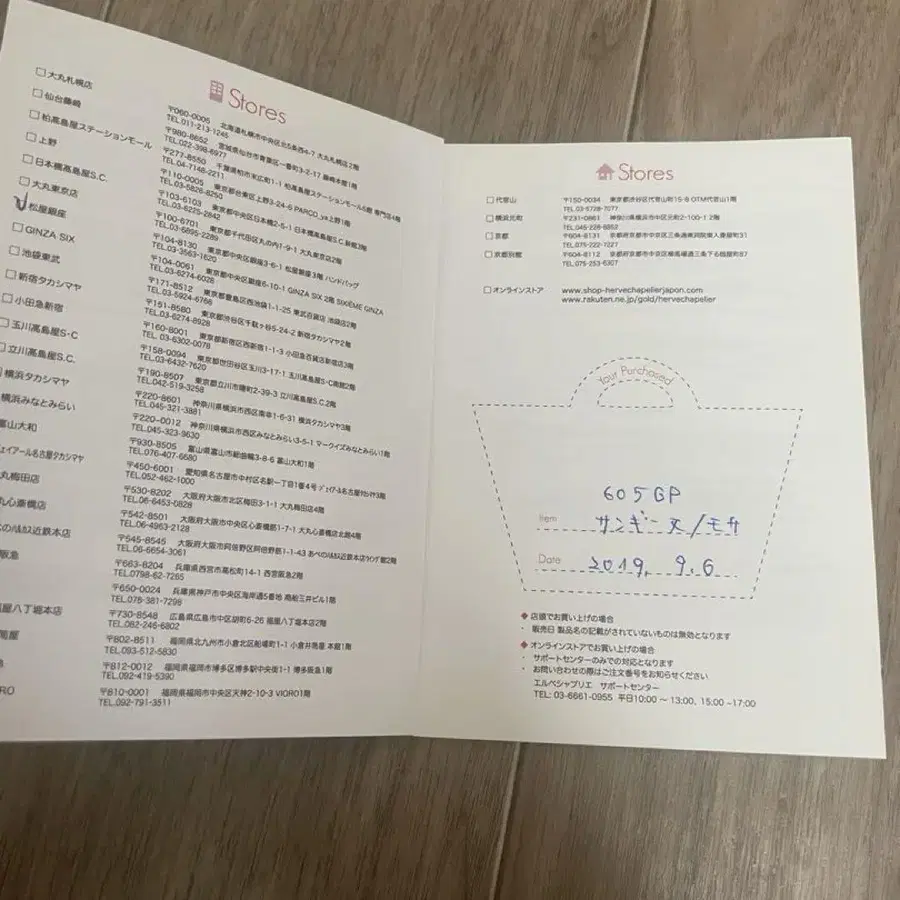 Stores
□大丸札幌店
〒060-0005 北海道札幌市中央区北5条西4-7 大丸札幌店2階
TEL.011-213-1245
□仙台藤崎
〒980-8652 宮城県仙台市青葉区一番町3-2-17 藤崎本館1階
TEL.022-398-6977
□柏髙島屋ステーションモール
〒277-8550 千葉県柏市末広町1-1 柏髙島屋ステーションモールS館 専門店4階
TEL.04-7148-2211
□上野
〒110-0005 東京都台東区上野3-24-6 PARCO_ya上野1階
TEL.03-5826-8250
□日本橋髙島屋S.C.
〒103-6103 東京都中央区日本橋2-5-1 日本橋髙島屋S.C.新館3階
TEL.03-6225-2842
□大丸東京店
〒100-6701 東京都千代田区丸の内1-9-1 大丸東京店2階
TEL.03-6895-2289
松屋銀座
〒104-8130 東京都中央区銀座3-6-1 松屋銀座3階 ハンドバッグ
TEL.03-3563-1620
□GINZA SIX
〒104-0061 東京都中央区銀座6-10-1 GINZA SIX 2階 SIXIÈME GINZA
TEL.03-6274-6028
□池袋東武
〒171-8512 東京都豊島区西池袋1-1-25 東武百貨店 池袋店2階
TEL.03-5924-6766
□新宿タカシマヤ
〒151-8580 東京都渋谷区千駄ヶ谷5-24-2 新宿タカシマヤ2階
TEL.03-6274-8928
□小田急新宿
〒160-8001 東京都新宿区西新宿1-1-3 小田急百貨店新宿店3階
TEL.03-6302-0078
□玉川髙島屋S・C
〒158-0094 東京都世田谷区玉川3-17-1 玉川髙島屋S・C南館2階
TEL.03-6432-7620
□立川髙島屋S.C.
〒190-8507 東京都立川市曙町2-39-3 立川髙島屋S.C.2階
TEL.042-519-3258
横浜タカシマヤ
〒220-8601 神奈川県横浜市西区南幸1-6-31 横浜タカシマヤ3階
TEL.045-321-3881
横浜みなとみらい
〒220-0012 神奈川県横浜市西区みなとみらい3-5-1 マークイズみなとみらい1階
TEL.045-323-9630
富山大和
〒930-8505 富山県富山市総曲輪3-8-6 富山大和1階
TEL.076-407-6580
ジェイアール名古屋タカシマヤ
〒450-6001 愛知県名古屋市中村区名駅一丁目1番4号 ジェイアール名古屋タカシマヤ3階
TEL.052-462-1000
丸梅田店
〒530-8202 大阪府大阪市北区梅田3-1-1 大丸梅田店4階
TEL.06-6453-0828
丸心斎橋店
〒542-8501 大阪府大阪市中央区心斎橋筋1-7-1 大丸心斎橋店北館4階
TEL.06-4963-2128
べのハルカス近鉄本店
〒545-8545 大阪府大阪市阿倍野区阿倍野筋1-1-43 あべのハルカス近鉄本店ウイング館2階
TEL.06-6654-3061
阪急
〒663-8204 兵庫県西宮市高松町14-1 西宮阪急2階
TEL.0798-62-7265
〒650-0024 兵庫県神戸市中央区海岸通5番地 商船三井ビル1階
TEL.078-381-7298
福屋八丁堀本店
〒730-8548 広島県広島市中区胡町6-26 福屋八丁堀本店2階
TEL.082-246-6802
筒屋
〒802-8511 福岡県北九州市小倉北区船場町1-1 小倉井筒屋 本館1階
TEL.093-512-5830
急
〒812-0012 福岡県福岡市博多区博多駅中央街1-1 博多阪急1階
TEL.092-419-5390
RO
〒810-0001 福岡県福岡市中央区天神2-10-3 VIORO1階
TEL.092-791-3511
Stores
□代官山
〒150-0034 東京都渋谷区代官山町15-8 OTM代官山1階
TEL.03-5728-7077
□横浜元町
〒231-0861 神奈川県横浜市中区元町2-100-1 2階
TEL.045-228-8852
□京都
〒604-8131 京都府京都市中京区三条通東洞院東入菱屋町31
TEL.075-222-7227
□京都別館
〒604-8112 京都府京都市中京区柳馬場通三条下る槌屋町87
TEL.075-253-6307
□オンラインストア
www.shop-hervechapelierjapon.com
www.rakuten.ne.jp/gold/hervechapelier
Your Purchased
605GP
Item サンギーヌ/モカ
Date 2019. 9.6
◆店頭でお買い上げの場合
・販売日 製品名の記載がされていないものは無効となります
◆オンラインストアでお買い上げの場合
・サポートセンターのみでの対応となります
・お問い合わせの際はご注文番号をお知らせください
エルベシャプリエ サポートセンター
TEL: 03-6661-0955 平日10:00 ～ 13:00, 15:00 ~17:00